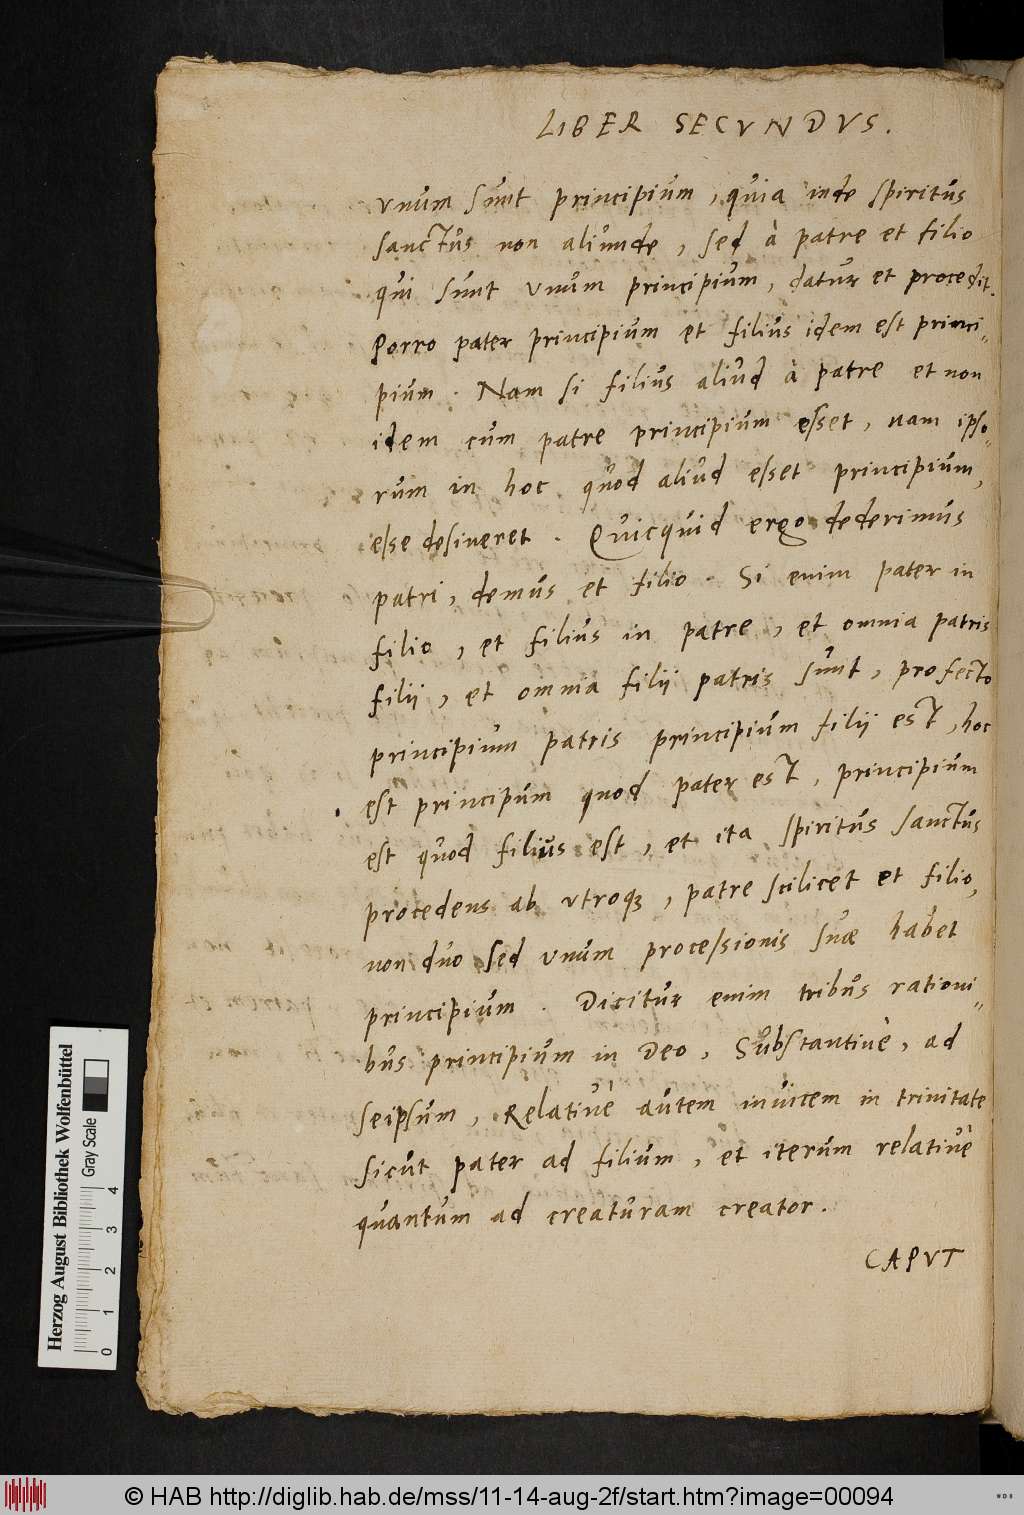 LIBER SECVNDVS.
vnum sunt principium, quia inde spiritus
sanctus non aliunde, sed à patre et filio
qui sunt vnum principium, datur et procedit.
Porro pater principium et filius idem est princi=
pium. Nam si filius aliud à patre et non
idem cum patre principium esset, nam ipso=
rum in hoc quod aliud esset principium,
esse desineret. Quicquid ergo dederimus
patri, demus et filio. Si enim pater in
filio, et filius in patre, et omnia patris
filii, et omnia filii patris sunt, profecto
principium patris principium filii est, hoc
est principum quod pater est, principium
est quod filius est, et ita spiritus sanctus
procedens ab vtroqꝫ, patre scilicet et filio,
non duo sed vnum processionis suæ habet
principium. Dicitur enim tribus rationi=
bus principium in Deo, Substantiuè, ad
seipsum, Relatiuè autem inuicem in trinitate
sicut pater ad filium, et iterum relatiuè
quantum ad creaturam creator.
CAPVT
Herzog August Bibliothek Wolfenbüttel
Gray Scale
0 1 2 3 4
© HAB http://diglib.hab.de/mss/11-14-aug-2f/start.htm?image=00094